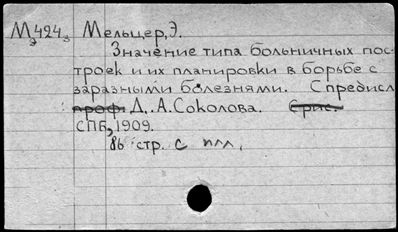 Мэ424з Мельцер, Э.
Значение типа больничных пос-
троек и их планировки в борьбе с
заразными болезнями. С предисл
проф. Д. А. Соколова. с рис.
СПБ, 1909.
86 стр. с илл.